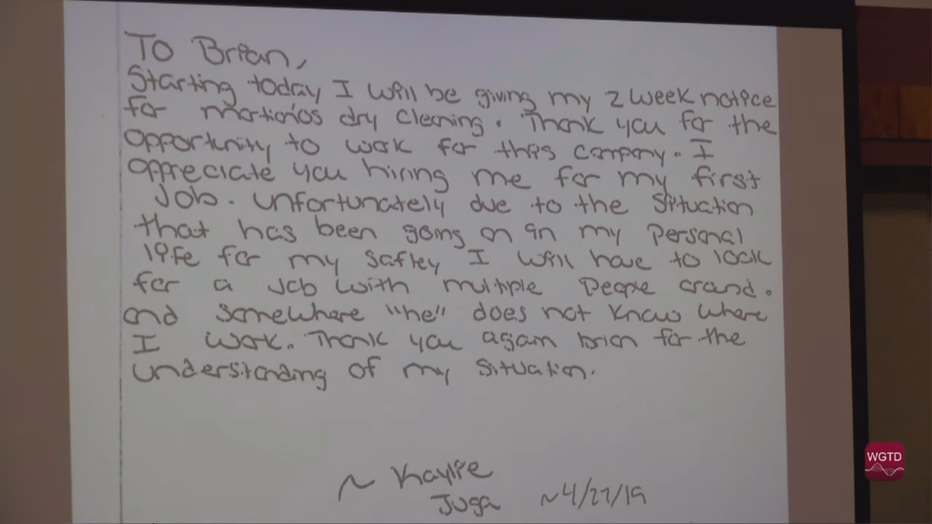 To Brian,
Starting today I will be giving my 2 week notice
for martinos dry cleaning. Thank you for the
opportunity to work for this company. I
appreciate you hiring me for my first
Job. unfortunately due to the situation
that has been going on in my personal
life for my safley I will have to look
for a Job with multiple people around.
and somewhere "he" does not know where
I work. Thank you again brian for the
understanding of my situation.
~ Kaylie
Juga ~4/27/19
WGTD